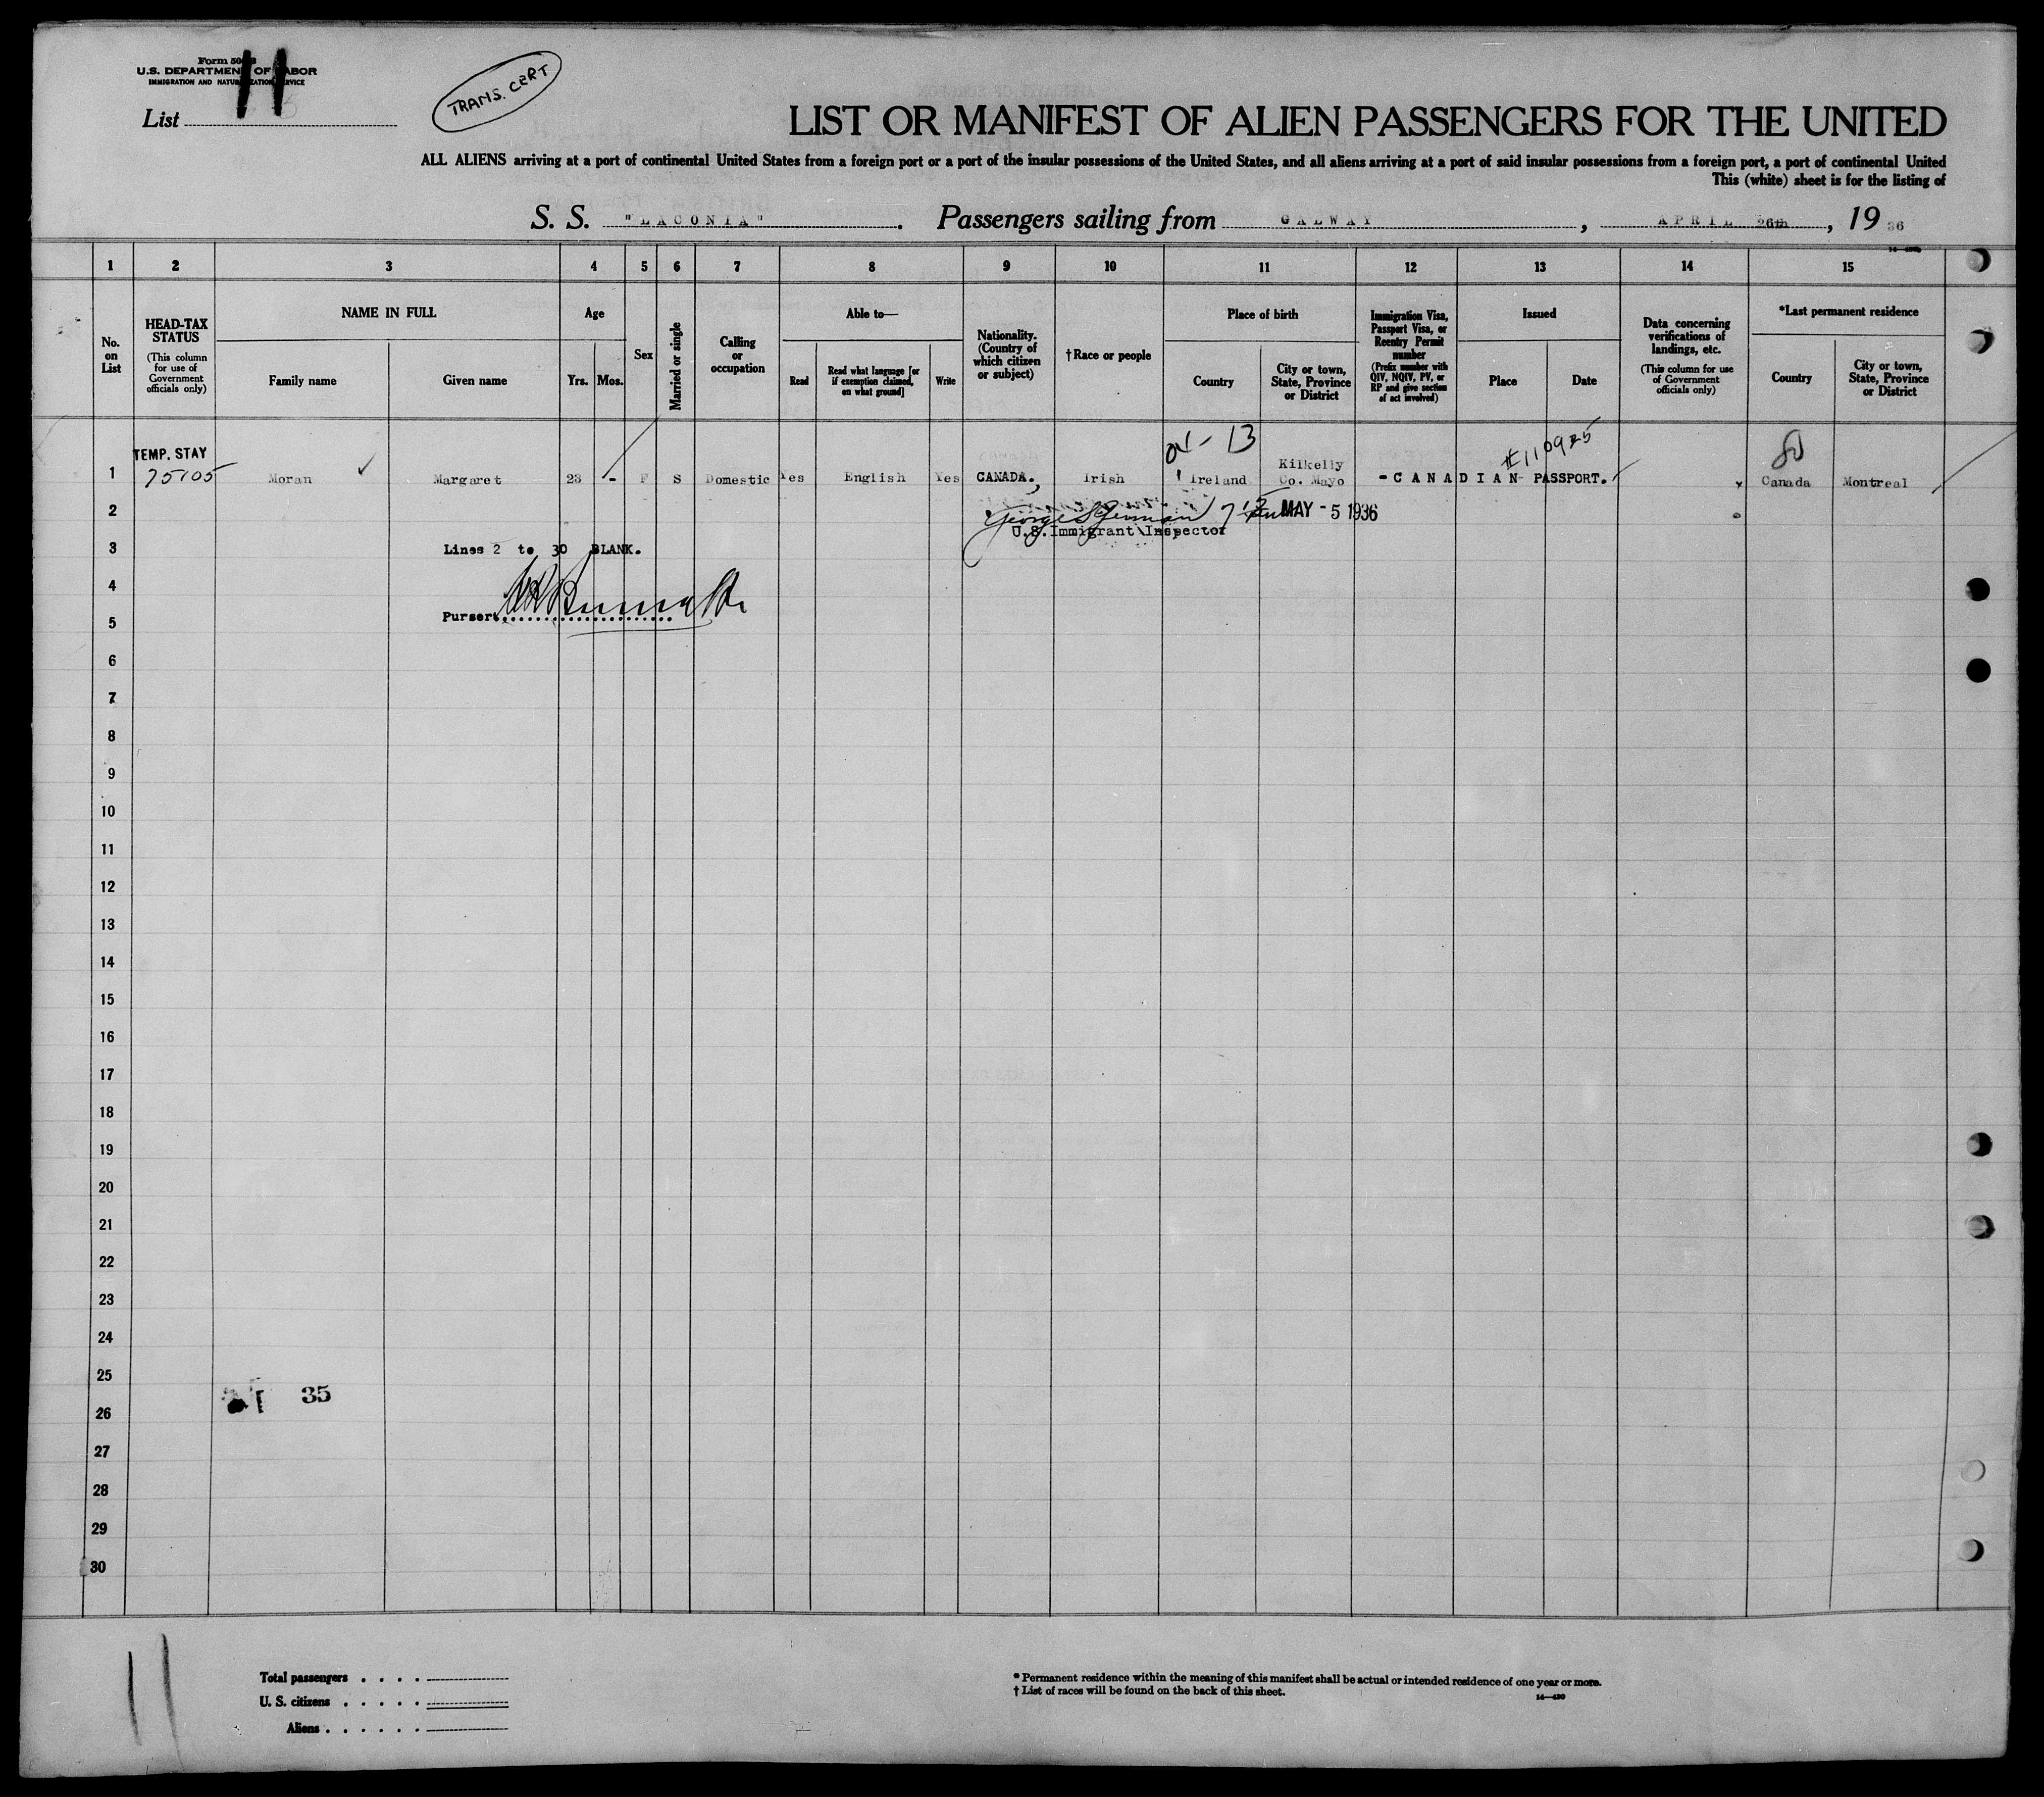 U.S. DEPARTMENT OF LABOR
IMMIGRATION AND NATURALIZATION SERVICE
List 11
TRANS. CERT
LIST OR MANIFEST OF ALIEN PASSENGERS FOR THE UNITED
ALL ALIENS arriving at a port of continental United States from a foreign port or a port of the insular possessions of the United States, and all aliens arriving at a port of said insular possessions from a foreign port, a port of continental United
This (white) sheet is for the listing of
S. S. "LACONIA". Passengers sailing from GALWAY, APRIL 26th, 1936
1 2 3 4 5 6 7 8 9 10 11 12 13 14 15
No. on List
HEAD-TAX STATUS
(This column for use of Government officials only)
NAME IN FULL
Family name
Given name
Age
Yrs.
Mos.
Sex
Married or single
Calling or occupation
Able to—
Read
Read what language [or if exemption claimed, on what ground]
Write
Nationality. (Country of which citizen or subject)
†Race or people
Place of birth
Country
City or town, State, Province or District
Immigration Visa, Passport Visa, or Reentry Permit number
(Prefix number with QIV, NQIV, PV, or RP and give section of act involved)
Issued
Place
Date
Data concerning verifications of landings, etc.
(This column for use of Government officials only)
*Last permanent residence
Country
City or town, State, Province or District
TEMP. STAY
1 Moran Margaret 23 - F S Domestic Yes English Yes CANADA. Irish Ireland Kilkelly Co. Mayo -CANADIAN- PASSPORT. Canada Montreal
2
MAY - 5 1936
U.S. Immigrant Inspector
3
Lines 2 to 30 BLANK.
4
Purser
5
6
7
8
9
10
11
12
13
14
15
16
17
18
19
20
21
22
23
24
25
35
26
27
28
29
30
Total passengers . . . .
U. S. citizens . . . . .
Aliens . . . . . .
* Permanent residence within the meaning of this manifest shall be actual or intended residence of one year or more.
† List of races will be found on the back of this sheet.